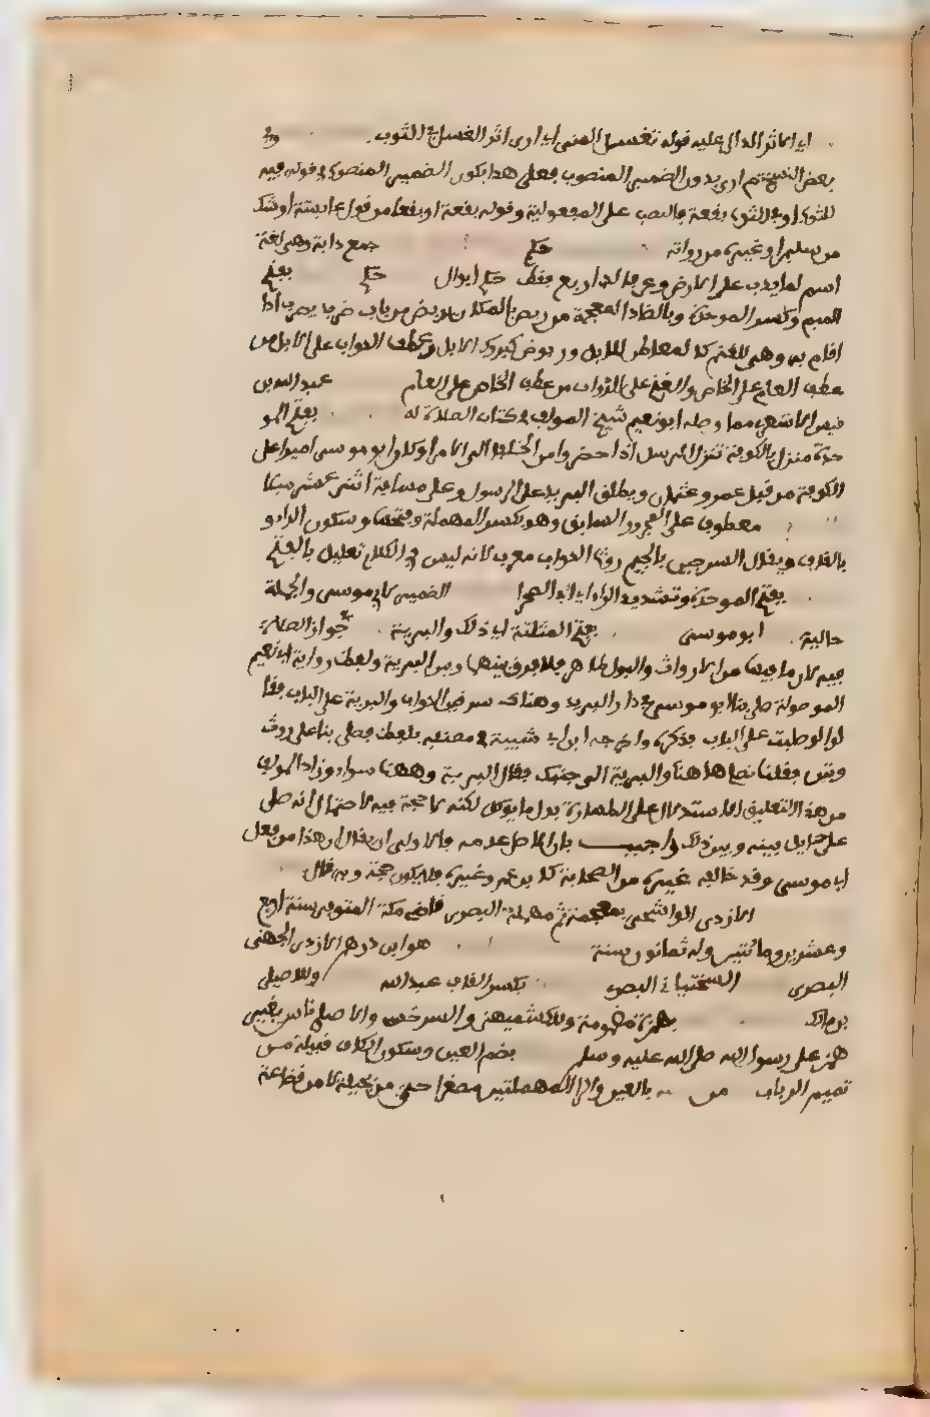 اي الاثر الدال عليه قوله تغسل المني اي ارى اثر الغسل في الثوب وفي
بعض النسخ ثم ارى بدون الضمير المنصوب فعلى هذا يكون الضمير المنصوب في قوله فيه
للثوب اي في الثوب بقعة بالنصب على المفعولية وقوله بقعة او بقعا من قول عايشة او شك
من سليمن او غيره من رواته جمع دابة وهي لغة
اسم لما يدب على الارض وعرفا لذي اربع فقط ابوال بفتح
الميم وكسر الموحدة وبالضاد المعجمة من ربض بالمكان يربض من باب ضرب يضرب اذا
اقام به وهي للغنم كالمعاطن للابل وربوض الغنم كبروك الابل وعطف الدواب على الابل من
عطف العام على الخاص والغنم على الدواب من عطف الخاص على العام عبد الله بن
قيس الاشعري مما وصله ابو نعيم شيخ المولف في كتاب الصلاة له بفتح المو
حدة منزل بالكوفة تنزل الرسل اذا حضروا من الخلفا الى الامرا وكان ابو موسى اميرا على
الكوفة من قبل عمر وعثمان ويطلق البريد على الرسول وعلى مسافة اثني عشر ميلا
معطوف على المجرور السابق وهو بكسر المهملة وفتحها وسكون الراء و
بالقاف ويقال السرجين بالجيم روث الدواب معرب لانه ليس في الكلام فعليل بالفتح
بفتح الموحدة وتشديد الراء اي الصحرا الضمير لابي موسى والجملة
حالية ابو موسى بفتح المثلثة اي ذلك والبرية في جواز الصلاة
فيه لان ما فيها من الارواث والبول طاهر فلا فرق بينها وبين البرية ولفظ رواية ابي نعيم
الموصولة صلى بنا ابو موسى في دار البريد وهناك سرقين الدواب والبرية على الباب فقا
لوا لو صليت على الباب فذكره واخرجه ابن ابي شيبة في مصنفه بلفظ فصلى بنا على روث
وتبن فقلنا تصلي هاهنا والبرية الى جنبك فقال البرية وههنا سوا واراد المولف
من هذا التعليق الاستدلال على الطهارة بول ما يوكل لكنه لا حجة فيه لاحتمال انه صلى
على حايل بينه وبين ذلك واجيب بان الاصل عدمه والاولى ان يقال ان هذا من فعل
ابي موسى وقد خالفه غيره من الصحابة كابن عمر وغيره فلا يكون حجة وبه قال
الازدي الواشحي بمعجمة ثم مهملة البصري قاضي مكة المتوفى سنة اربع
وعشرين ومائتين وله ثمانون سنة هو ابن درهم الازدي الجهضمي
البصري السختياني البصري بكسر القاف عبد الله وللاصيلي
بن مالك بهمزة مضمومة وللكشميهني والسرخسي والاصيلي ناس بغير
همز على رسول الله صلى الله عليه وسلم بضم العين وسكون الكاف قبيلة من
تميم الرباب من بالعين والراء المهملتين مصغرا حي من بجيلة لا من قضاعة